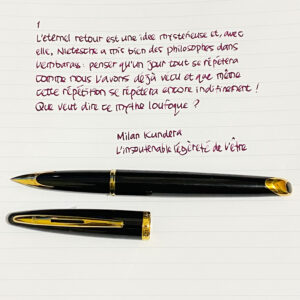 1
L'éternel retour est une idée mystérieuse et, avec
elle, Nietzsche a mis bien des philosophes dans
l'embarras : penser qu'un jour tout se répétera
comme nous l'avons déjà vécu et que même
cette répétition se répétera encore indéfiniment !
Que veut dire ce mythe loufoque ?
Milan Kundera
L'insoutenable légèreté de l'être